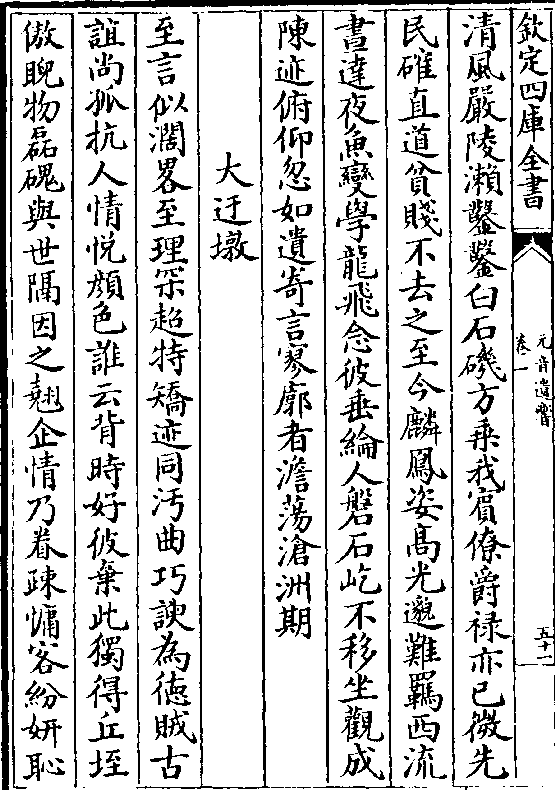 欽定四庫全書
元音遺響
卷一
五十一
清風嚴陵瀬鑿鑿白石磯方乗我賔僚爵禄亦已微先
民確直道貧賤不去之至今麟鳳姿髙光邈難羈西流
晝達夜魚變學龍飛念彼垂綸人磐石屹不移坐觀成
陳迹俯仰忽如遺寄言寥廓者澹蕩滄洲期
大迂墩
至言似濶畧至理深超特矯迹同汚曲巧諛為徳賊古
誼尚孤抗人情悦顔色誰云背時好彼棄此獨得丘垤
傲睨物磊磈與世隔因之翹企情乃眷疎慵客紛妍恥